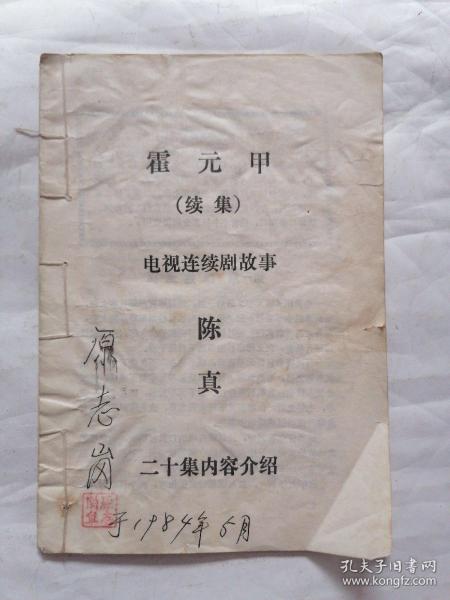 霍元甲
（续集）
电视连续剧故事
陈
真
二十集内容介绍
志岗
于1984年5月
孔夫子旧书网
www.kongfz.com